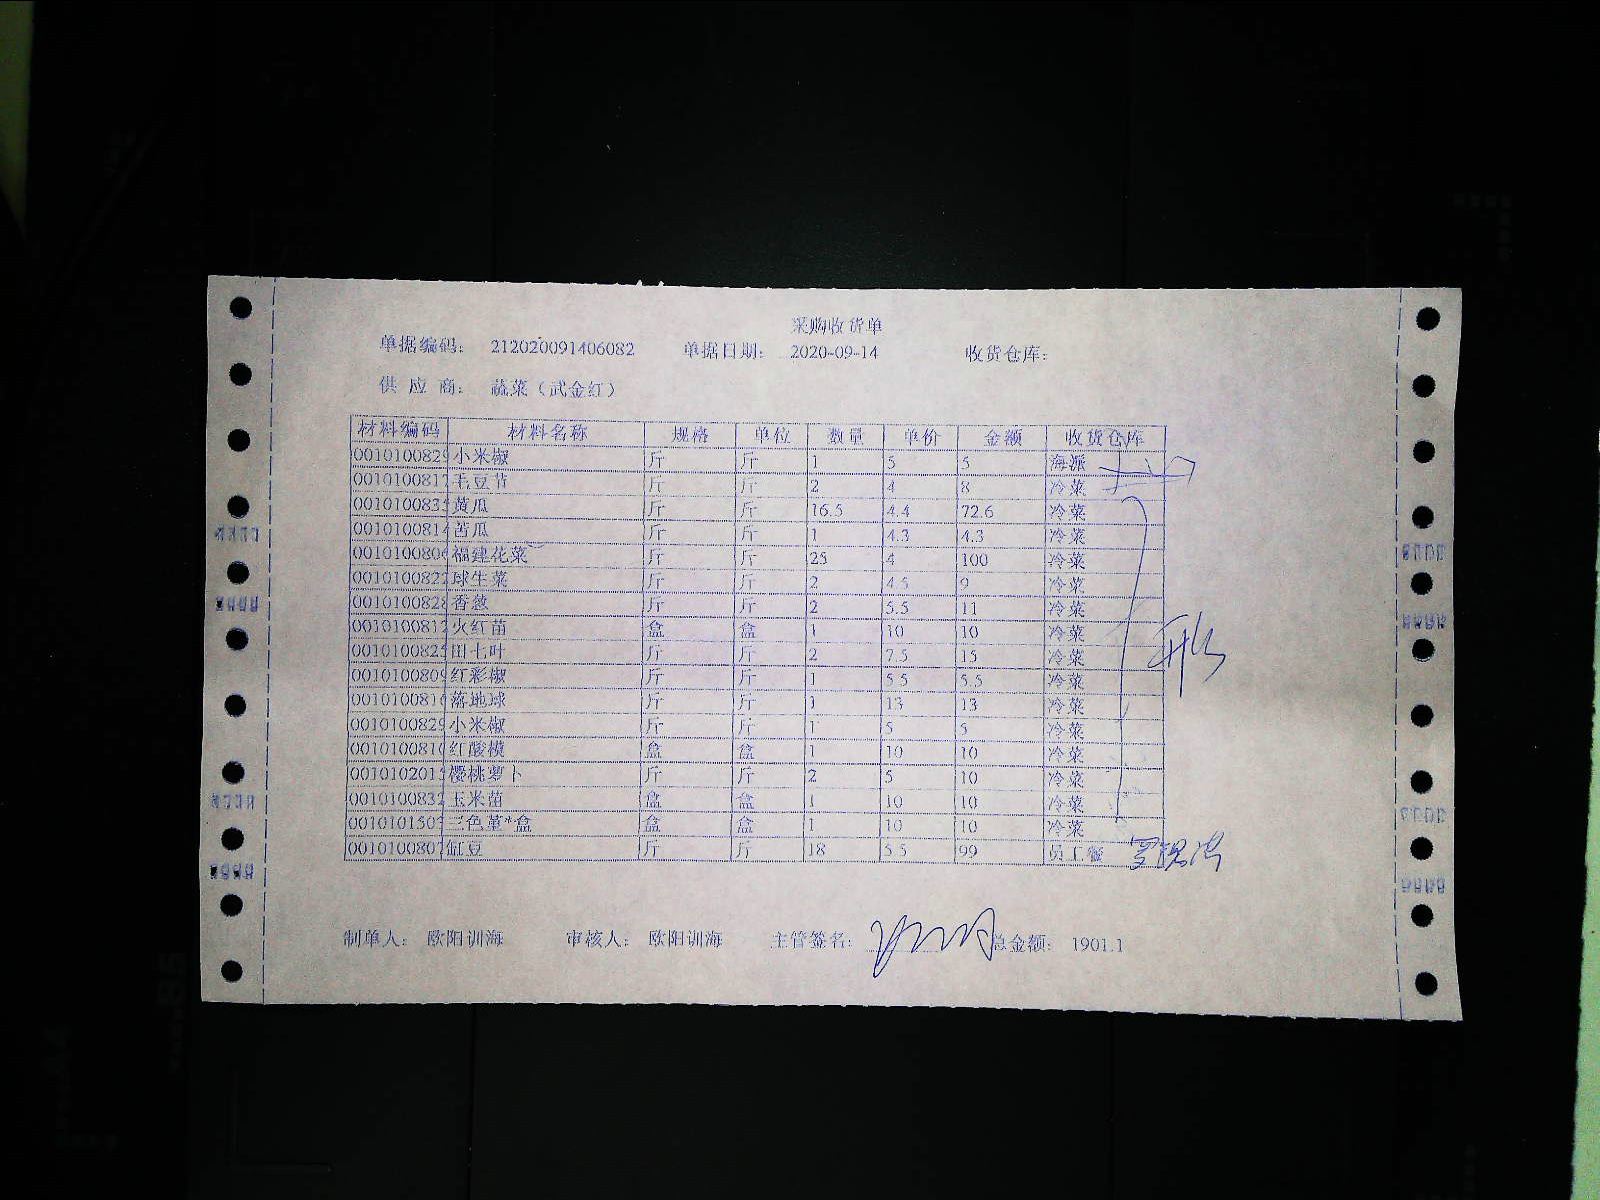 采购收货单
单据编码： 212020091406082 单据日期： 2020-09-14 收货仓库：
供 应 商： 蔬菜（武金红）
材料编码 材料名称 规格 单位 数量 单价 金额 收货仓库
0010100829 小米椒 斤 斤 1 5 5 海派
0010100817 毛豆节 斤 斤 2 4 8 冷菜
001010083 黄瓜 斤 斤 16.5 4.4 72.6 冷菜
0010100814 苦瓜 斤 斤 1 4.3 4.3 冷菜
0010100806 福建花菜 斤 斤 25 4 100 冷菜
0010100822 球生菜 斤 斤 2 4.5 9 冷菜
0010100828 香葱 斤 斤 2 5.5 11 冷菜
0010100812 火红苗 盒 盒 1 10 10 冷菜
0010100825 田七叶 斤 斤 2 7.5 15 冷菜
0010100809 红彩椒 斤 斤 1 5.5 5.5 冷菜
001010081 落地球 斤 斤 1 13 13 冷菜
0010100829 小米椒 斤 斤 1 5 5 冷菜
001010081 红酸模 盒 盒 1 10 10 冷菜
001010201 樱桃萝卜 斤 斤 2 5 10 冷菜
0010100832 玉米苗 盒 盒 1 10 10 冷菜
001010150 三色堇*盒 盒 盒 1 10 10 冷菜
0010100807 缸豆 斤 斤 18 5.5 99 员工餐
制单人： 欧阳训海 审核人： 欧阳训海 主管签名： 总金额： 1901.1